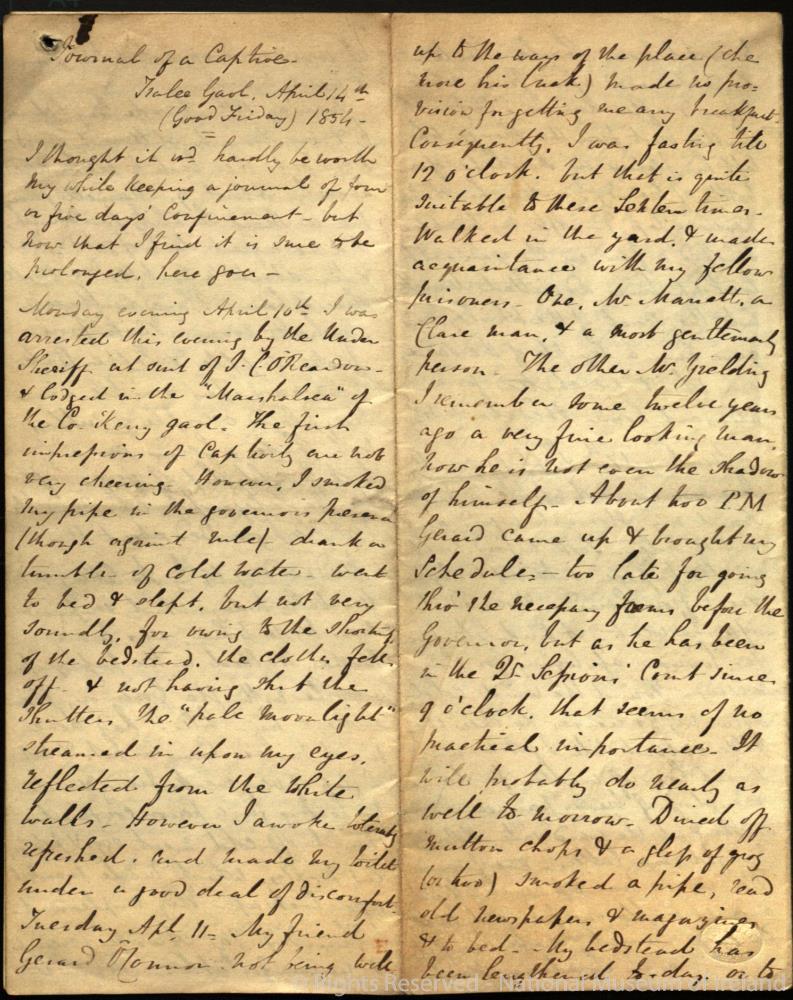 Journal of a Captive.
Tralee Gaol. April 14th
(Good Friday) 1854 -
I thought it wd. hardly be worth
my while keeping a journal of four
or five days' Confinement - but
now that I find it is sure to be
prolonged, here goes -
Monday evening April 10th I was
arrested this evening by the Under
Sheriff at suit of J. C. O'Reardon -
& lodged in the "Marshalsea" of
the Co. Kerry gaol. The first
impressions of Captivity are not
very cheering. However, I smoked
my pipe in the governors presence
(though against rule) - drank a
tumbler of cold water - went
to bed & slept, but not very
soundly, for owing to the shortness
of the bedstead, the clothes fell
off - & not having shut the
shutters the "pale moonlight"
streamed in upon my eyes,
reflected from the white
walls - However I awoke tolerably
refreshed, and made my toilet
under a good deal of discomfort.
Tuesday Apl. 11 - My friend
Gerard O'Connor not being well
up to the ways of the place (the
more his luck) made no pro=
vision for getting me any breakfast.
Consequently, I was fasting till
12 o'clock. but that is quite
suitable to these Lenten times.
Walked in the yard, & made
acquaintance with my fellow
prisoners - One, Mr Mariatt, a
Clare man, & a most gentlemanly
person. The other Mr.
I remember some twelve years
ago a very fine looking man,
now he is not even the shadow
of himself - About two PM
Gerard came up & brought my
Schedules - too late for going
thro' the necessary forms before the
Governor, but as he has been
in the Qr Sessions' Court since
9 o'clock, that seems of no
practical importance - It
will probably do nearly as
well to morrow. Dined off
mutton chops & a glass of grog
(or two) smoked a pipe, read
old newspapers & magazines
& to bed - My bedstead has
been lengthened to day or to
© Rights Reserved - National Museum of Ireland